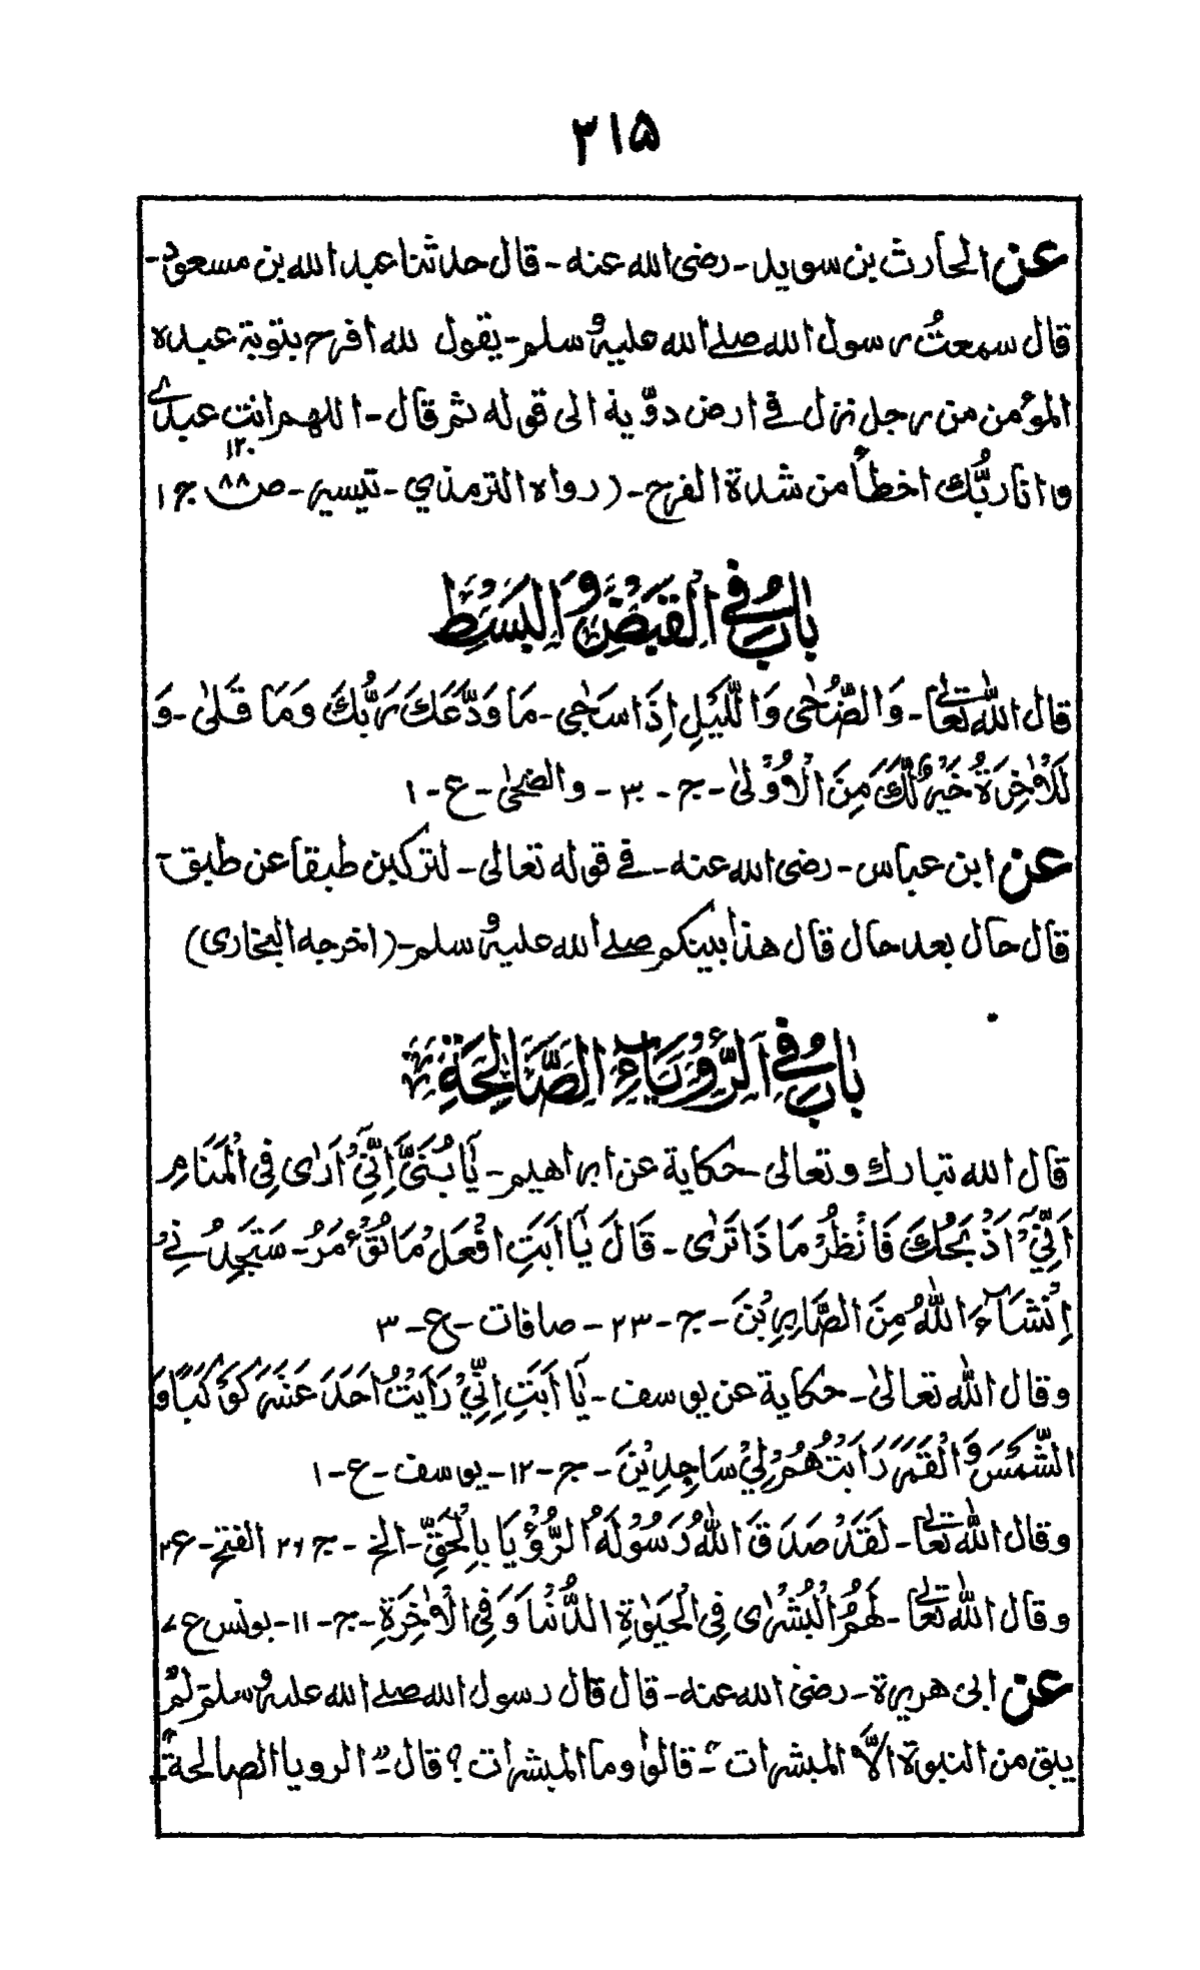 ۳۱۵
عن الحارث بن سويد - رضى الله عنه - قال حدثنا عبد الله بن مسعود -
قال سمعتُ رسول الله صلے الله عليہ وسلم - يقول لله افرح بتوبة عبده
المؤمن من رجل نزل فے ارض دوّية الى قوله ثم قال - اللهم انت عبدي
وانا ربُّك اخطأ من شدة الفرح - (رواه الترمذي - تيسير - ص ۸۸ ۱۲۰ ج ۱
بَابُ فِے الْقَبْضِ وَالْبَسْطِ
قال الله تعالٰے - وَالضُّحٰى وَالَّيْلِ اِذَا سَجٰى - مَا وَدَّعَكَ رَبُّكَ وَمَا قَلٰى - وَ
لَلْاٰخِرَةُ خَيْرٌ لَّكَ مِنَ الْاُوْلٰى - ج - ۳۰ - والضحٰى - ع - ۱
عن ابن عباس - رضى الله عنه - فے قوله تعالى - لتركبن طبقا عن طبق -
قال حال بعد حال قال هذا بينكم صلے الله عليہ وسلم - (اخرجه البخارى)
بَابُ فِے الرُّؤْيَاءِ الصَّالِحَةِ
قال الله تبارك وتعالى - حكاية عن ابراهيم - يَا بُنَيَّ اِنِّيْ اَرٰى فِى الْمَنَامِ
اَنِّيْ اَذْبَحُكَ فَانْظُرْ مَا ذَا تَرٰى - قَالَ يَا اَبَتِ افْعَلْ مَا تُؤْمَرُ - سَتَجِدُنِيْ
اِنْشَآءَ اللهُ مِنَ الصَّابِرِيْنَ - ج - ۲۳ - صافات - ع - ۳
وقال الله تعالىٰ - حكاية عن يوسف - يَا اَبَتِ اِنِّيْ رَاَيْتُ اَحَدَ عَشَرَ كَوْكَبًا وَ
الشَّمْسَ وَالْقَمَرَ رَاَيْتُهُمْ لِيْ سَاجِدِيْنَ - ج - ۱۲ - يوسف - ع - ۱
وقال الله تعالٰے - لَقَدْ صَدَقَ اللهُ رَسُوْلَهُ الرُّؤْيَا بِالْحَقِّ - الخ - ج ۲۶ الفتح - ع ۴
وقال الله تعالٰے - لَهُمُ الْبُشْرٰى فِى الْحَيٰوةِ الدُّنْيَا وَفِى الْاٰخِرَةِ - ج - ۱۱ - يونس ع ۷
عن ابى هريرة - رضى الله عنه - قال قال رسول الله صلے الله عليہ وسلم لم
يبق من النبوة الّا المبشرات - قالوا وما المبشرات ؟ قال - الرويا الصالحة -